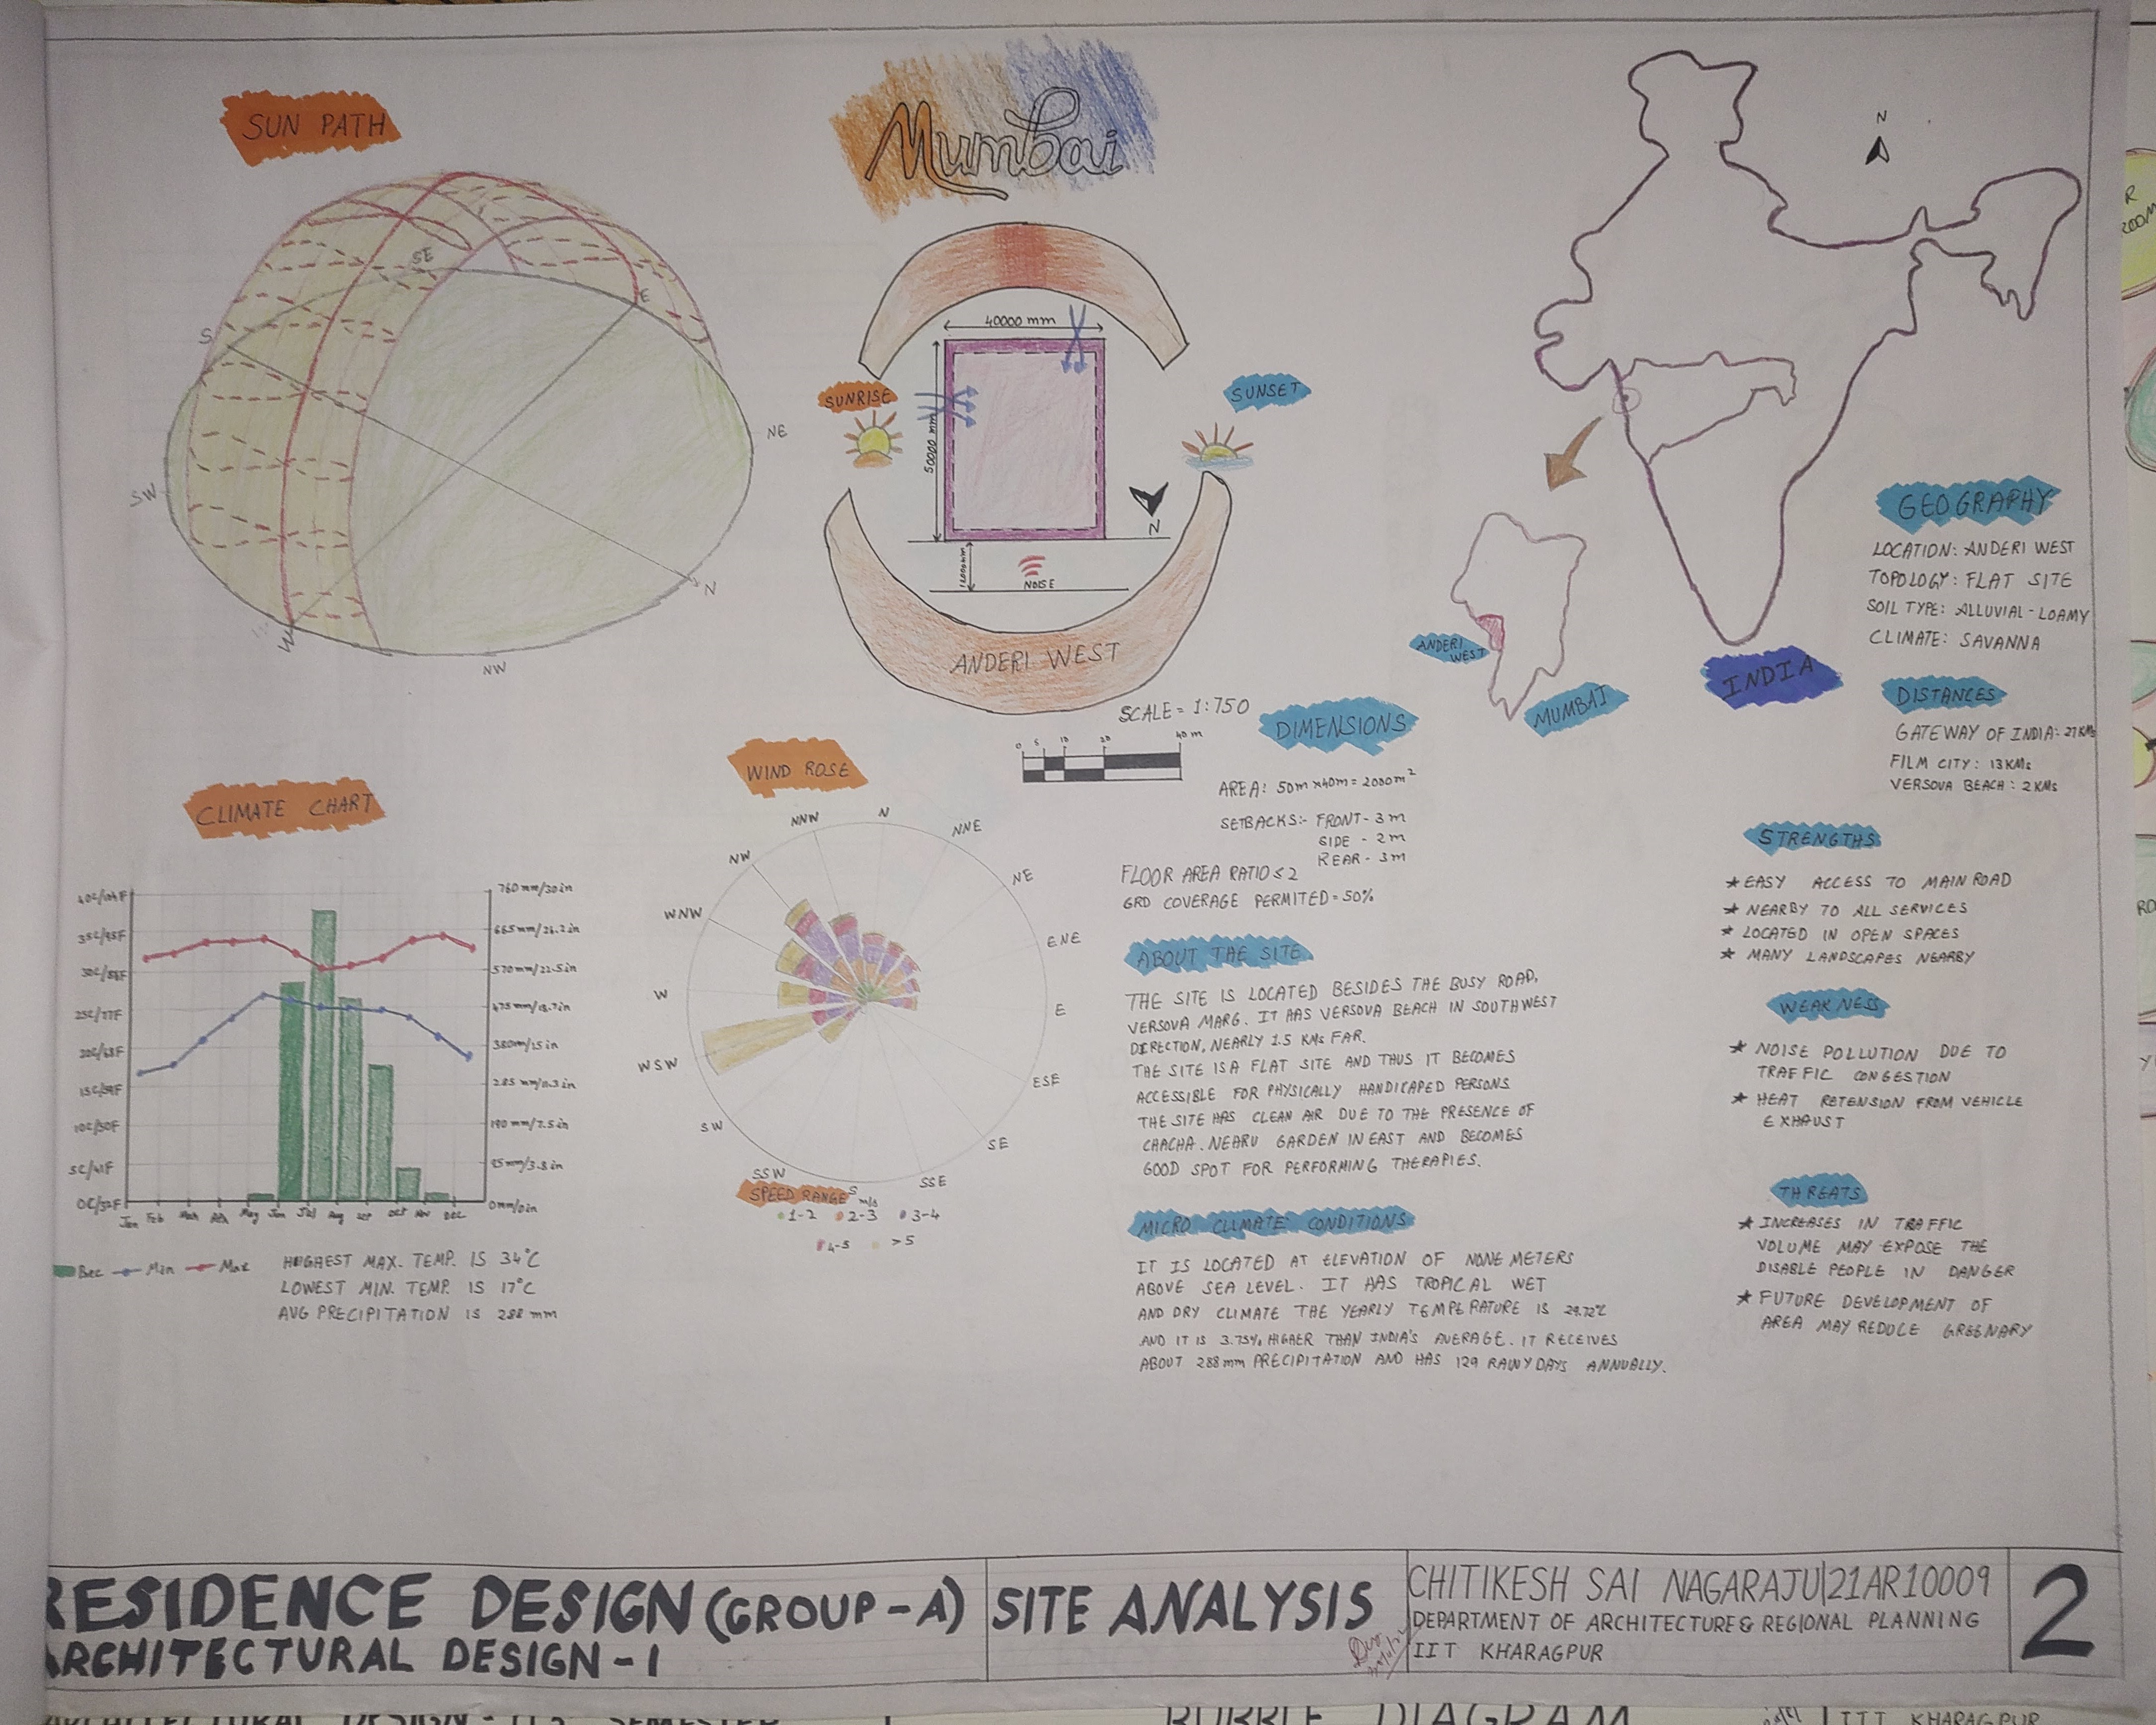 SUN PATH
SE
E
S
NE
SW
N
W
NW
Mumbai
40000 mm
SUNRISE
SUNSET
50000 mm
N
12000mm
NOISE
ANDERI WEST
SCALE = 1:750
0 5 10 20 40 m
N
ANDERI
WEST
MUMBAI
INDIA
GEOGRAPHY
LOCATION: ANDERI WEST
TOPOLOGY: FLAT SITE
SOIL TYPE: ALLUVIAL-LOAMY
CLIMATE: SAVANNA
DISTANCES
GATEWAY OF INDIA: 27 KMs
FILM CITY: 13 KMs
VERSOVA BEACH: 2 KMs
DIMENSIONS
AREA: 50m x40m = 2000m²
SETBACKS:- FRONT- 3 m
SIDE - 2m
REAR - 3m
FLOOR AREA RATIO ≤ 2
GRD COVERAGE PERMITED = 50%
CLIMATE CHART
40C/104F
35C/95F
30C/86F
25C/77F
20C/68F
15C/59F
10C/50F
5C/41F
0C/32F
760 mm/30in
665mm/26.2in
570mm/22.5in
475mm/18.7in
380mm/15in
285 mm/11.3in
190 mm/7.5in
95mm/3.8in
0mm/0in
Jan Feb Mah Apr May Jun Jul Aug Sep Oct Nov Dec
Min Max
HIGHEST MAX. TEMP. IS 34°C
LOWEST MIN. TEMP. IS 17°C
AVG PRECIPITATION IS 288 mm
WIND ROSE
N
NNE
NE
ENE
E
ESE
SE
SSE
S
SSW
SW
WSW
W
WNW
NW
NNW
SPEED RANGE m/s
1-2 2-3 3-4
4-5 >5
ABOUT THE SITE
THE SITE IS LOCATED BESIDES THE BUSY ROAD,
VERSOVA MARG. IT HAS VERSOVA BEACH IN SOUTHWEST
DIRECTION, NEARLY 1.5 KMs FAR.
THE SITE IS A FLAT SITE AND THUS IT BECOMES
ACCESSIBLE FOR PHYSICALLY HANDICAPED PERSONS
THE SITE HAS CLEAN AIR DUE TO THE PRESENCE OF
CHACHA NEHRU GARDEN IN EAST AND BECOMES
GOOD SPOT FOR PERFORMING THERAPIES.
MICRO CLIMATE CONDITIONS
IT IS LOCATED AT ELEVATION OF NONE METERS
ABOVE SEA LEVEL. IT HAS TROPICAL WET
AND DRY CLIMATE THE YEARLY TEMPERATURE IS 29.72°C
AND IT IS 3.75% HIGHER THAN INDIA'S AVERAGE. IT RECEIVES
ABOUT 288mm PRECIPITATION AND HAS 129 RAINY DAYS ANNUALLY.
STRENGTHS
★ EASY ACCESS TO MAIN ROAD
★ NEARBY TO ALL SERVICES
★ LOCATED IN OPEN SPACES
★ MANY LANDSCAPES NEARBY
WEAKNESS
★ NOISE POLLUTION DUE TO
TRAFFIC CONGESTION
★ HEAT RETENSION FROM VEHICLE
EXHAUST
THREATS
★ INCREASES IN TRAFFIC
VOLUME MAY EXPOSE THE
DISABLE PEOPLE IN DANGER
★ FUTURE DEVELOPMENT OF
AREA MAY REDUCE GREENARY
RESIDENCE DESIGN (GROUP-A)
ARCHITECTURAL DESIGN-1
SITE ANALYSIS
CHITIKESH SAI NAGARAJU|21AR10009
DEPARTMENT OF ARCHITECTURE & REGIONAL PLANNING
IIT KHARAGPUR
2
BUBBLE DIAGRAM
IIT KHARAGPUR